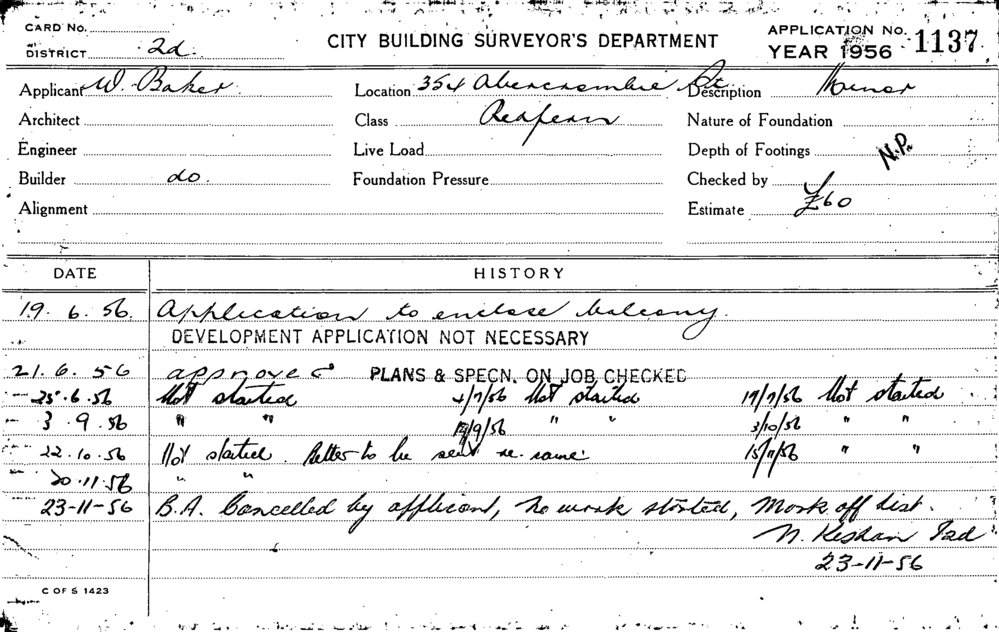 CARD No.
DISTRICT 2d.
CITY BUILDING SURVEYOR'S DEPARTMENT
APPLICATION No. 1137
YEAR 1956
Applicant W. Baker Location 354 Abercrombie St Description Minor
Architect Class Redfern Nature of Foundation
Engineer Live Load Depth of Footings N.P.
Builder do. Foundation Pressure Checked by
Alignment Estimate £60
DATE HISTORY
19.6.56. Application to enclose balcony
DEVELOPMENT APPLICATION NOT NECESSARY
21.6.56 approved PLANS & SPECN. ON JOB CHECKED
25.6.56 Not started 4/7/56 Not started 17/7/56 Not started
3.9.56 " " /9/56 " " 3/10/56 " "
22.10.56 Not started. Letter to be sent re same. 15/11/56 " "
20.11.56 " "
23-11-56 B.A. Cancelled by applicant, no work started, Mark off list.
23-11-56
C OF S 1423